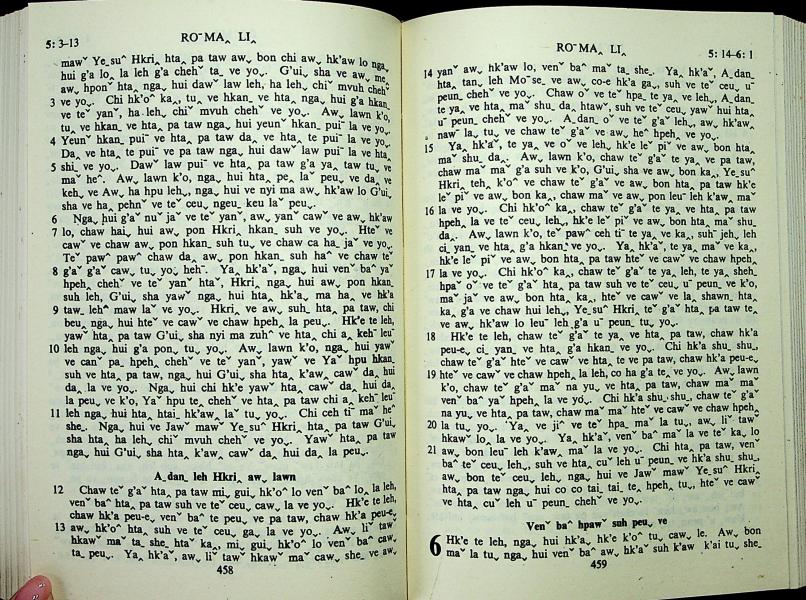 5: 3–13
RO¯ MAꞈ LIꞈ
mawˇ Ye-suˆ Hkri, htaꞈ pa taw awˬ bon chi awˬ hk'aw lo ngaˬ
hui g'a loꞈ la leh g'a chehˇ ta_ ve yoˬ. G'uiˬ sha ve awˬ meꞈ
awꞈ hponˇ htaꞈ ngaˬ hui dawˇ law leh, ha leh, chiˇ mvuh chehˇ
3 ve yoˬ. Chi hk'oˆ kaꞈ, tuꞈ ve hkanꞈ ve htaꞈ ngaˬ hui g'a hkanꞈ
ve teˇ yanˇ, ha leh, chiˇ mvuh chehˇ ve yoˬ. Awꞈ lawn k'o,
tuꞈ ve hkanꞈ ve hta pa taw ngaˬ hui yeunˇ hkanꞈ puiˉ la ve yoˬ.
4 Yeunˇ hkanꞈ puiˉ ve htaꞈ pa taw daꞈ ve htaꞈ te puiˉ la ve yoˬ.
Daꞈ ve hta te puiˉ ve pa taw ngaˬ hui dawˇ law puiˉ la ve hta
5 shiꞈ ve yoˬ. Dawˇ law puiˉ ve htaꞈ pa taw g'a yaꞈ taw tuꞈ ve
maˇ heˆ. Awꞈ lawn k'o, ngaˬ hui htaꞈ peꞈ laˇ peuꞈ ve daꞈ ve
kehꞈ ve Awꞈ ha hpu leh, ngaˬ hui ve nyi ma awꞈ hk'aw lo G'uiˬ
sha ve ha_ pehnˇ ve teˇ ceuꞈ ngeuꞈ keu laˇ peuˬ.
6 Ngaˬ hui g'aˇ nuˇ jaˇ ve teˇ yanˇ, awꞈ yanˇ cawˇ ve awꞈ hk'aw
7 lo, chaw hai, hui awꞈ pon Hkri, hkan_ suh ve yoˬ. Hteˇ ve
cawˇ ve chaw awꞈ pon hkan_ suh tuꞈ ve chaw ca ha_ jaˇ ve yoˬ.
Teˇ pawˆ pawˆ chaw daꞈ awꞈ pon hkan_ suh haˆ ve chaw teˇ
8 g'aˇ g'aˇ cawꞈ tuꞈ yoꞈ hehˉ. Yaꞈ hk'aˇ, ngaˬ hui venˇ baˆ yaˇ
hpehꞈ chehˇ ve teˇ yanˇ htaˇ, Hkri, ngaˬ hui awꞈ pon hkan_
suh leh, G'uiˬ sha yawˇ ngaˬ hui htaꞈ hk'aꞈ ma ha_ ve hk'a
9 tawꞈ lehˆ mawꞈ laˇ ve yoˬ. Hkri, ve awꞈ suh_ htaꞈ pa taw, chi
beuꞈ ngaˬ hui hteˇ ve cawˇ ve chaw hpehꞈ la peuˬ. Hk'e te leh,
yawˇ htaꞈ pa taw G'uiˬ sha nyi ma zuhˆ ve htaꞈ chi aꞈ kehˉ leuˉ
10 leh ngaˬ hui g'a ponꞈ tuꞈ yoˬ. Awꞈ lawn k'o, ngaˬ hui yawˇ
ve canˇ pa_ hpehꞈ chehˇ ve teˇ yanˇ, yawˇ ve Yaˇ hpu hkan_
suh ve htaꞈ pa taw, ngaˬ hui G'uiˬ sha htaꞈ k'awꞈ cawˇ daꞈ hui
daꞈ la ve yoˬ. Ngaˬ hui chi hk'e yawˇ htaꞈ cawˇ daꞈ hui daꞈ
la peuꞈ ve k'o, Yaˇ hpu te_ chehˇ ve htaꞈ pa taw chi aꞈ kehˉ leuˉ
11 leh ngaˬ hui htaꞈ htai_ hk'awꞈ laˇ tuꞈ yoˬ. Chi ceh tiˉ maˇ heˆ
she_. Ngaˬ hui ve Jaw mawˇ Ye-suˆ Hkri, htaꞈ pa taw G'uiˬ
sha htaꞈ ha leh, chiˇ mvuh chehˇ ve yoˬ. Yawˇ htaꞈ pa taw
ngaˬ hui G'uiˬ sha htaꞈ k'awꞈ cawˇ daꞈ hui daꞈ la peuˬ.
A-danꞈ leh Hkri, awꞈ lawn
12 Chaw teˇ g'aˇ htaꞈ pa taw miꞈ gui, hk'oˆ lo venˇ baˆ loꞈ la leh,
venˇ baˆ htaꞈ pa taw suh ve teˇ ceuꞈ cawꞈ la ve yoˬ. Hk'e te leh,
chaw hk'a peu-eꞈ venˇ baˆ te peuꞈ ve pa taw, chaw hk'a peu-eꞈ
13 awꞈ hk'oˆ htaꞈ suh ve teˇ ceuꞈ gaꞈ la ve yoˬ. Awꞈ liˇ tawˇ
hkawˇ maˇ ta_ she_ htaˇ kaꞈ, miꞈ gui, hk'oˆ lo venˇ baˆ cawꞈ
ta_ peuˬ. Yaꞈ hk'aˇ, awꞈ liˇ tawˇ hkawˇ maˇ cawꞈ she_ ve awꞈ
458
RO¯ MAꞈ LIꞈ
5: 14–6: 1
14 yanˇ awꞈ hk'aw lo, venˇ baˆ maˇ ta_ she_. Yaꞈ hk'aˇ, A-danꞈ
htaꞈ tanꞈ leh Moˉse_ ve awꞈ co-e hk'a gaꞈ, suh ve teˇ ceuꞈ uˉ
peunꞈ chehˇ ve yoˬ. Chaw oˇ ve teˇ hpaꞈ te yaꞈ ve leh, A-danꞈ
te yaꞈ ve htaꞈ maˇ shuꞈ daꞈ htawˇ, suh ve teˇ ceuꞈ yawˇ hui htaꞈ
uˉ peunꞈ chehˇ ve yoˬ. A-danꞈ oˇ ve teˇ g'aˇ leh, awꞈ hk'aw
nawˉ laꞈ tuꞈ ve chaw teˇ g'aˇ ve awꞈ heˆ hpehꞈ ve yoˬ.
15 Yaꞈ hk'aˇ, te yaꞈ ve oˇ ve leh, hk'e leˇ piˇ ve awꞈ bon htaꞈ
maˇ shuꞈ da_. Awꞈ lawn k'o, chaw teˇ g'aˇ te yaꞈ ve pa taw,
chaw maˇ maˇ g'a suh ve k'o, G'uiˬ sha ve awꞈ bon kaꞈ, Ye-suˆ
Hkri, tehꞈ k'oˆ ve chaw teˇ g'aˇ ve awꞈ bon htaꞈ pa taw hk'e
leˇ piˇ ve awꞈ bon kaꞈ, chaw maˇ ve awꞈ pon leuˉ leh k'awꞈ maˇ
16 la ve yoˬ. Chi hk'oˆ kaꞈ, chaw teˇ g'aˇ te yaꞈ ve htaꞈ pa taw
hpehꞈ la ve teˇ ceuꞈ leh, hk'e leˇ piˇ ve awꞈ bon htaꞈ maˇ shuꞈ
da_. Awꞈ lawn k'o, teˇ pawˆ ceh tiˉ te yaꞈ ve kaꞈ, suhˉ jehꞈ leh
ci_ yanꞈ ve htaꞈ g'a hkanꞈ ve yoˬ. Yaꞈ hk'aˇ, te yaꞈ maˇ ve kaꞈ,
hk'e leˇ piˇ ve awꞈ bon htaꞈ pa taw hteˇ ve cawˇ ve chaw hpehꞈ
17 la ve yoˬ. Chi hk'oˆ kaꞈ, chaw teˇ g'aˇ te yaꞈ leh, te yaꞈ sheh_
hpaˇ oˇ ve teˇ g'aˇ htaꞈ pa taw suh ve teˇ ceuꞈ uˉ peunꞈ ve k'o,
maˇ jaˇ ve awꞈ bon htaꞈ kaꞈ, hteˇ ve cawˇ ve la_ shawn_ htaꞈ
kaꞈ g'a ve chaw hui leh, Ye-suˆ Hkri, teˇ g'aˇ htaꞈ pa taw te_
ve awꞈ hk'aw lo leuˉ leh g'a uˉ peunꞈ tuꞈ yoˬ.
18 Hk'e te leh, chaw teˇ g'aˇ te yaꞈ ve htaꞈ pa taw, chaw hk'a
peu-eꞈ ci_ yanꞈ ve htaꞈ g'a hkanꞈ ve yoˬ. Chi hk'a shuꞈ shuꞈ
chaw teˇ g'aˇ hteˇ ve cawˇ ve htaꞈ te ve pa taw, chaw hk'a peu-eꞈ
19 hteˇ ve cawˇ ve chaw hpehꞈ la leh, co ha g'a te_ ve yoˬ. Awꞈ lawn
k'o, chaw teˇ g'aˇ maˇ na yu ve htaꞈ pa taw, chaw maˇ maˇ
venˇ baˆ yaˇ hpehꞈ la ve yoˬ. Chi hk'a shuꞈ shuꞈ, chaw teˇ g'aˇ
na yu ve htaꞈ pa taw, chaw maˇ maˇ hteˇ ve cawˇ ve chaw hpehꞈ
20 la tuꞈ yoˬ. Yaꞈ ve jiˆ ve teˇ hpaꞈ maˇ la tuꞈ, awꞈ liˇ tawˇ
hkawˇ loꞈ la ve yoˬ. Yaꞈ hk'aˇ, venˇ baˆ maˇ la ve teˇ kaꞈ lo
21 awꞈ bon leuˉ leh k'awꞈ maˇ la ve yoˬ. Chi hta pa taw, venˇ
baˆ teˇ ceuꞈ leh, suh ve htaꞈ cuˇ leh uˉ peunꞈ ve hk'a shuꞈ shuꞈ,
awꞈ bon teˇ ceuꞈ leh, ngaˬ hui ve Jaw mawˇ Ye-suˆ Hkri,
htaꞈ pa taw ngaˬ hui co co tai_ tai_ te_ hpehꞈ tuꞈ, hteˇ ve cawˇ
ve htaꞈ cuˇ leh uˉ peunꞈ chehˇ ve yoˬ.
Venˇ baˆ hpawˇ suh peuꞈ ve
6 Hk'e te leh, ngaˬ hui hk'aꞈ hk'e k'oˆ tuꞈ cawꞈ le. Awꞈ bon
maˇ la tuꞈ, ngaˬ hui venˇ baˆ awꞈ hk'aˇ suh k'aw k'ai tuꞈ she_
459